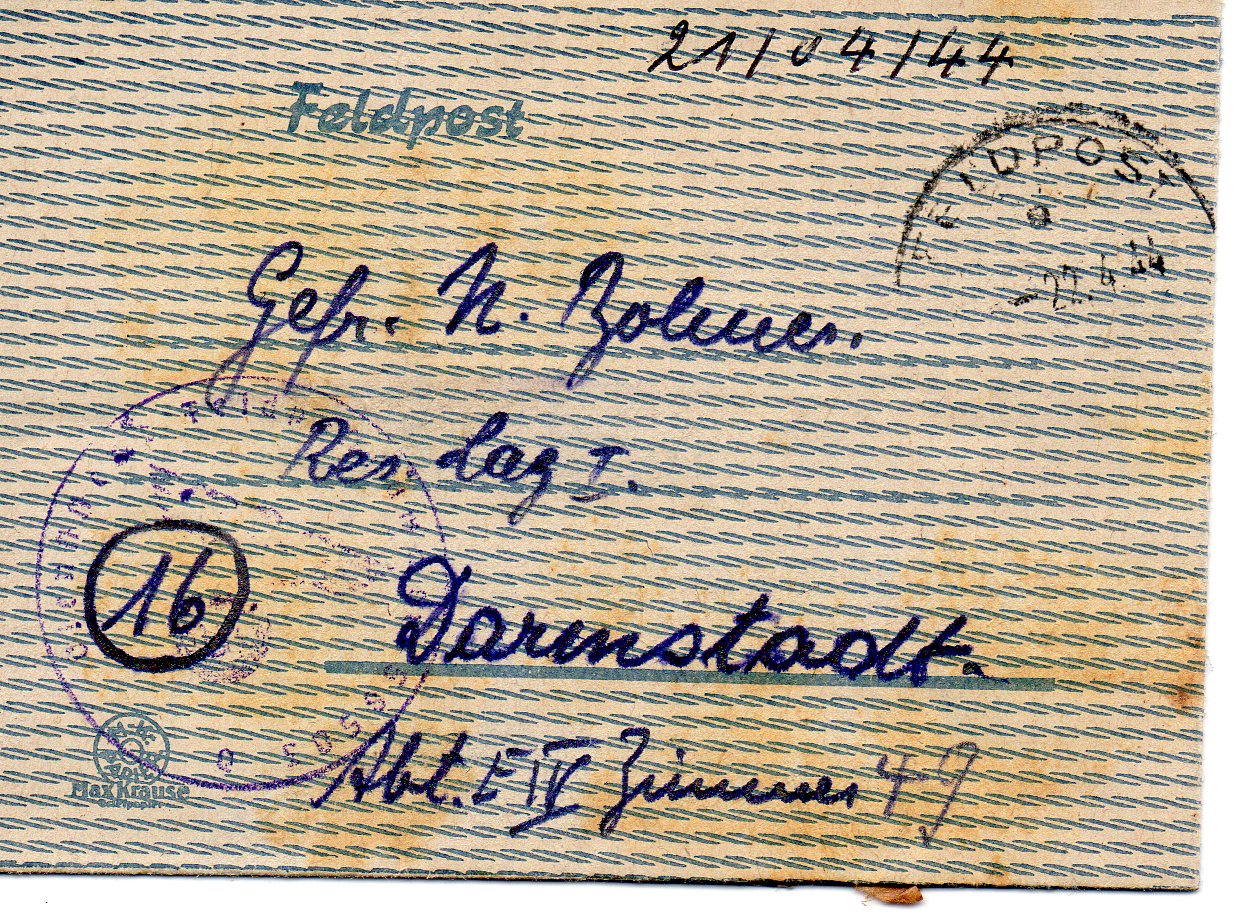 21/04/44
Feldpost
FELDPOST
a
-22.4.44
Gefr. N.
Res. Laz I.
16
Darmstadt.
Abt. E IV Zimmer 49
Max Krause